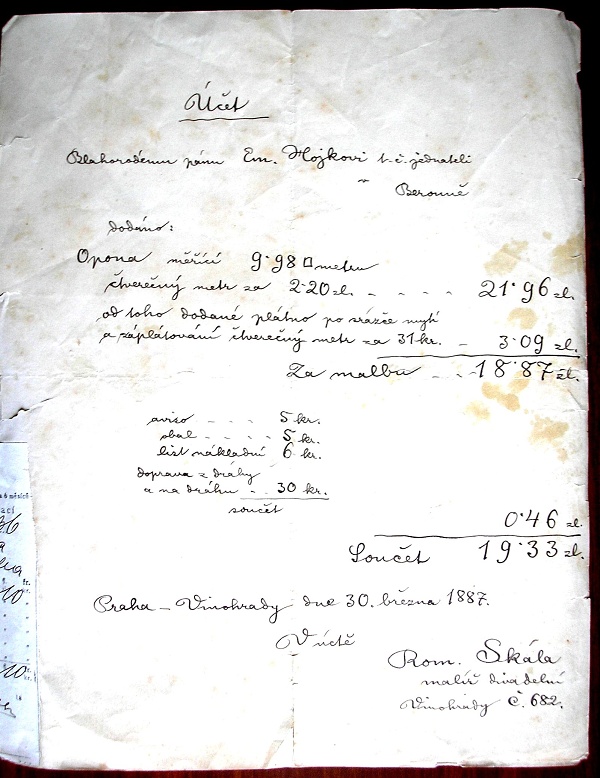 Účet
Blahorodému pánu Em. Hojkovi t. č. jednateli
v
Berouně
dodáno:
Opona měřící 9·98 □ metru
čtverečný metr za 2·20 zl. - - - - 21·96 zl.
od toho dodané plátno po srážce mytí
a záplatování čtverečný metr za 31 kr. - 3·09 zl.
Za malbu - - - 18·87 zl.
aviso - - - 5 kr.
obal - - - - 5 kr.
list nákladní 6 kr.
doprava z dráhy
a na dráhu - - 30 kr.
součet
0·46 zl.
Součet 19·33 zl.
Praha - Vinohrady dne 30. března 1887.
V úctě
Rom. Skála
malíř divadelní
Vinohrady č. 682.
a 6 měsíců
36
10
10